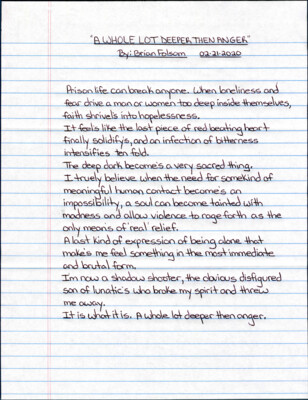 "A WHOLE LOT DEEPER THEN ANGER"
By: Brian Folsom 02-21-2020
Prison life can break anyone. When loneliness and
fear drive a man or women too deep inside themselves,
faith shrivels into hopelessness.
It feels like the last piece of red beating heart
finally solidify's, and an infection of bitterness
intensifies ten fold.
The deep dark become's a very sacred thing.
I truely believe when the need for somekind of
meaningful human contact become's an
impossibility, a soul can become tainted with
madness and allow violence to rage forth as the
only means of real relief.
A last kind of expression of being alone that
make's me feel something in the most immediate
and brutal form.
I'm now a shadow shooter, the obvious disfigured
son of lunatic's who broke my spirit and threw
me away.
It is what it is. A whole lot deeper then anger.